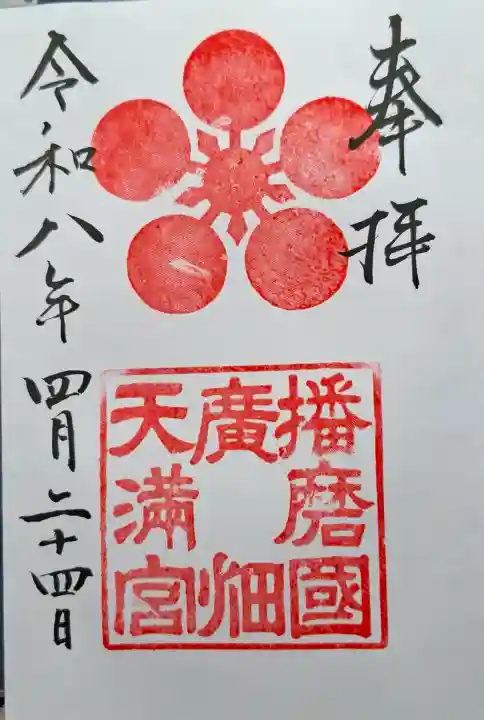 奉拝
播磨國
廣畑
天満宮
令和八年四月二十四日